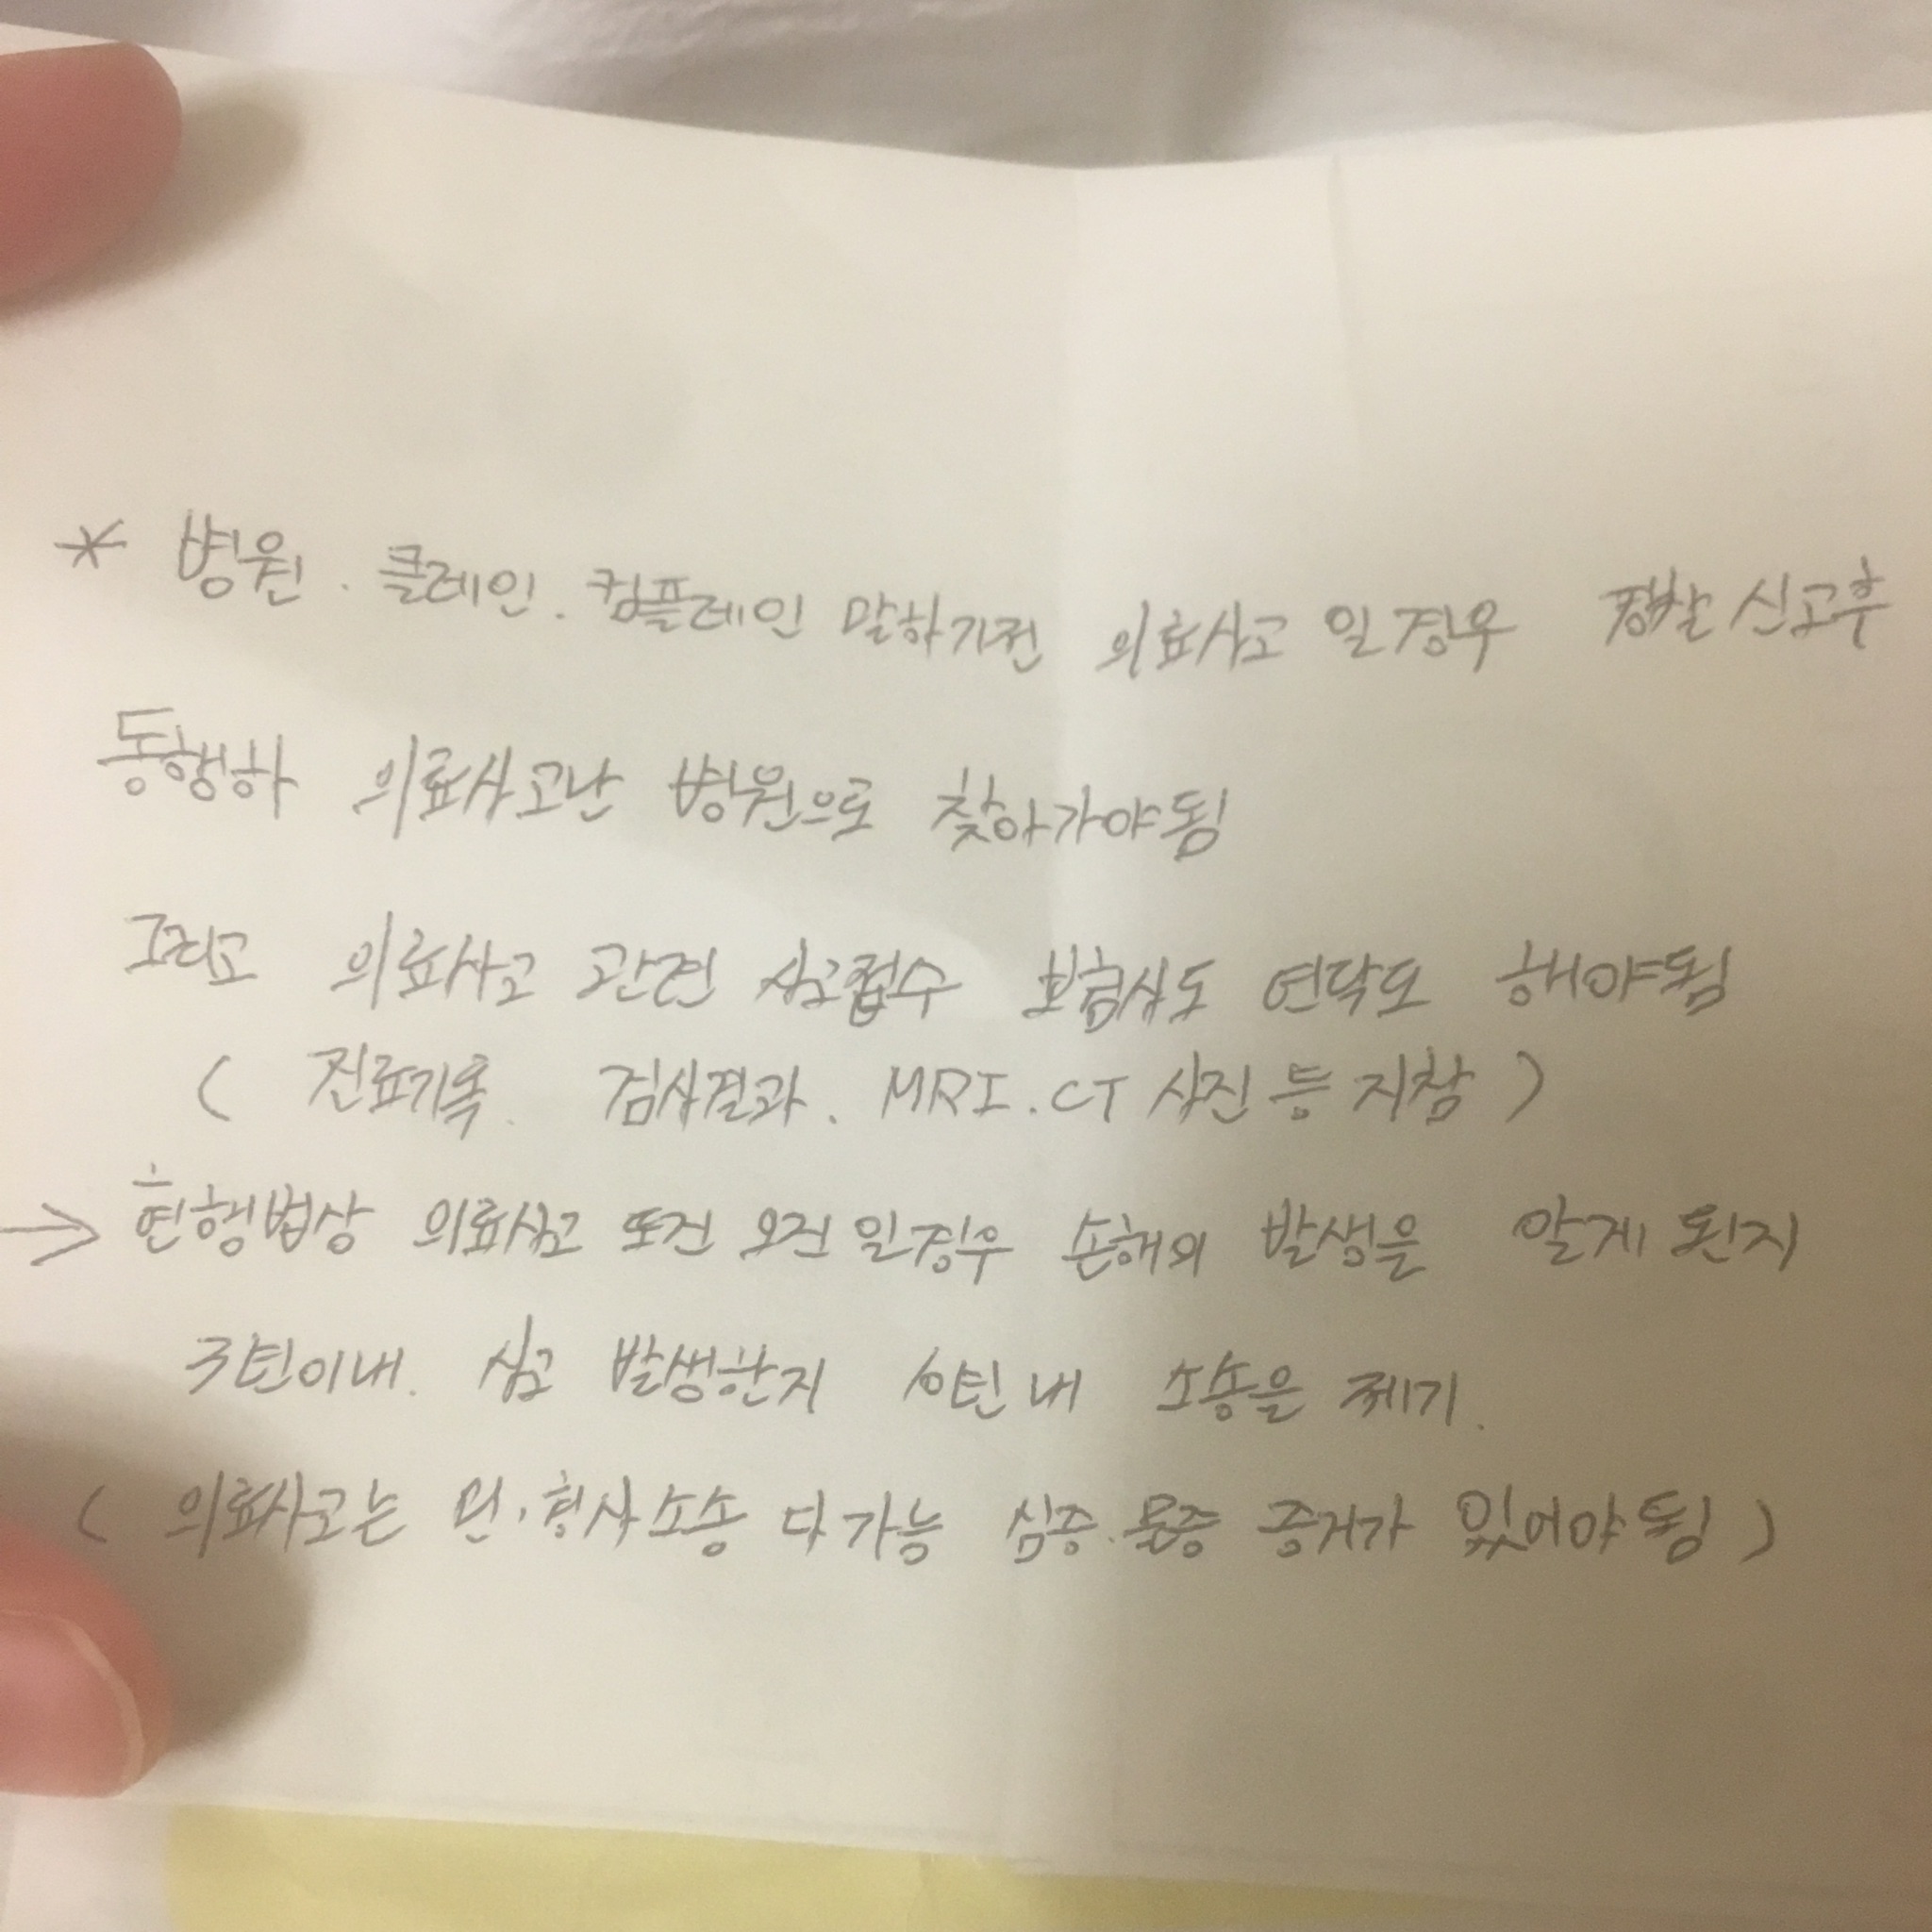 * 병원. 클레인. 컴플레인 말하기전 의료사고 일경우 경찰 신고후
동행하 의료사고난 병원으로 찾아가야됨
그리고 의료사고 관련 사고접수 보험사도 연락도 해야됨
( 진료기록. 검사결과. MRI. CT 사진 등 지참 )
→ 현행법상 의료사고 또건 오진 일경우 손해의 발생을 알게 된지
3년이내. 사고 발생한지 10년 내 소송을 제기.
( 의료사고는 민.형사소송 다 가능 심증.물증 증거가 있어야 됨 )